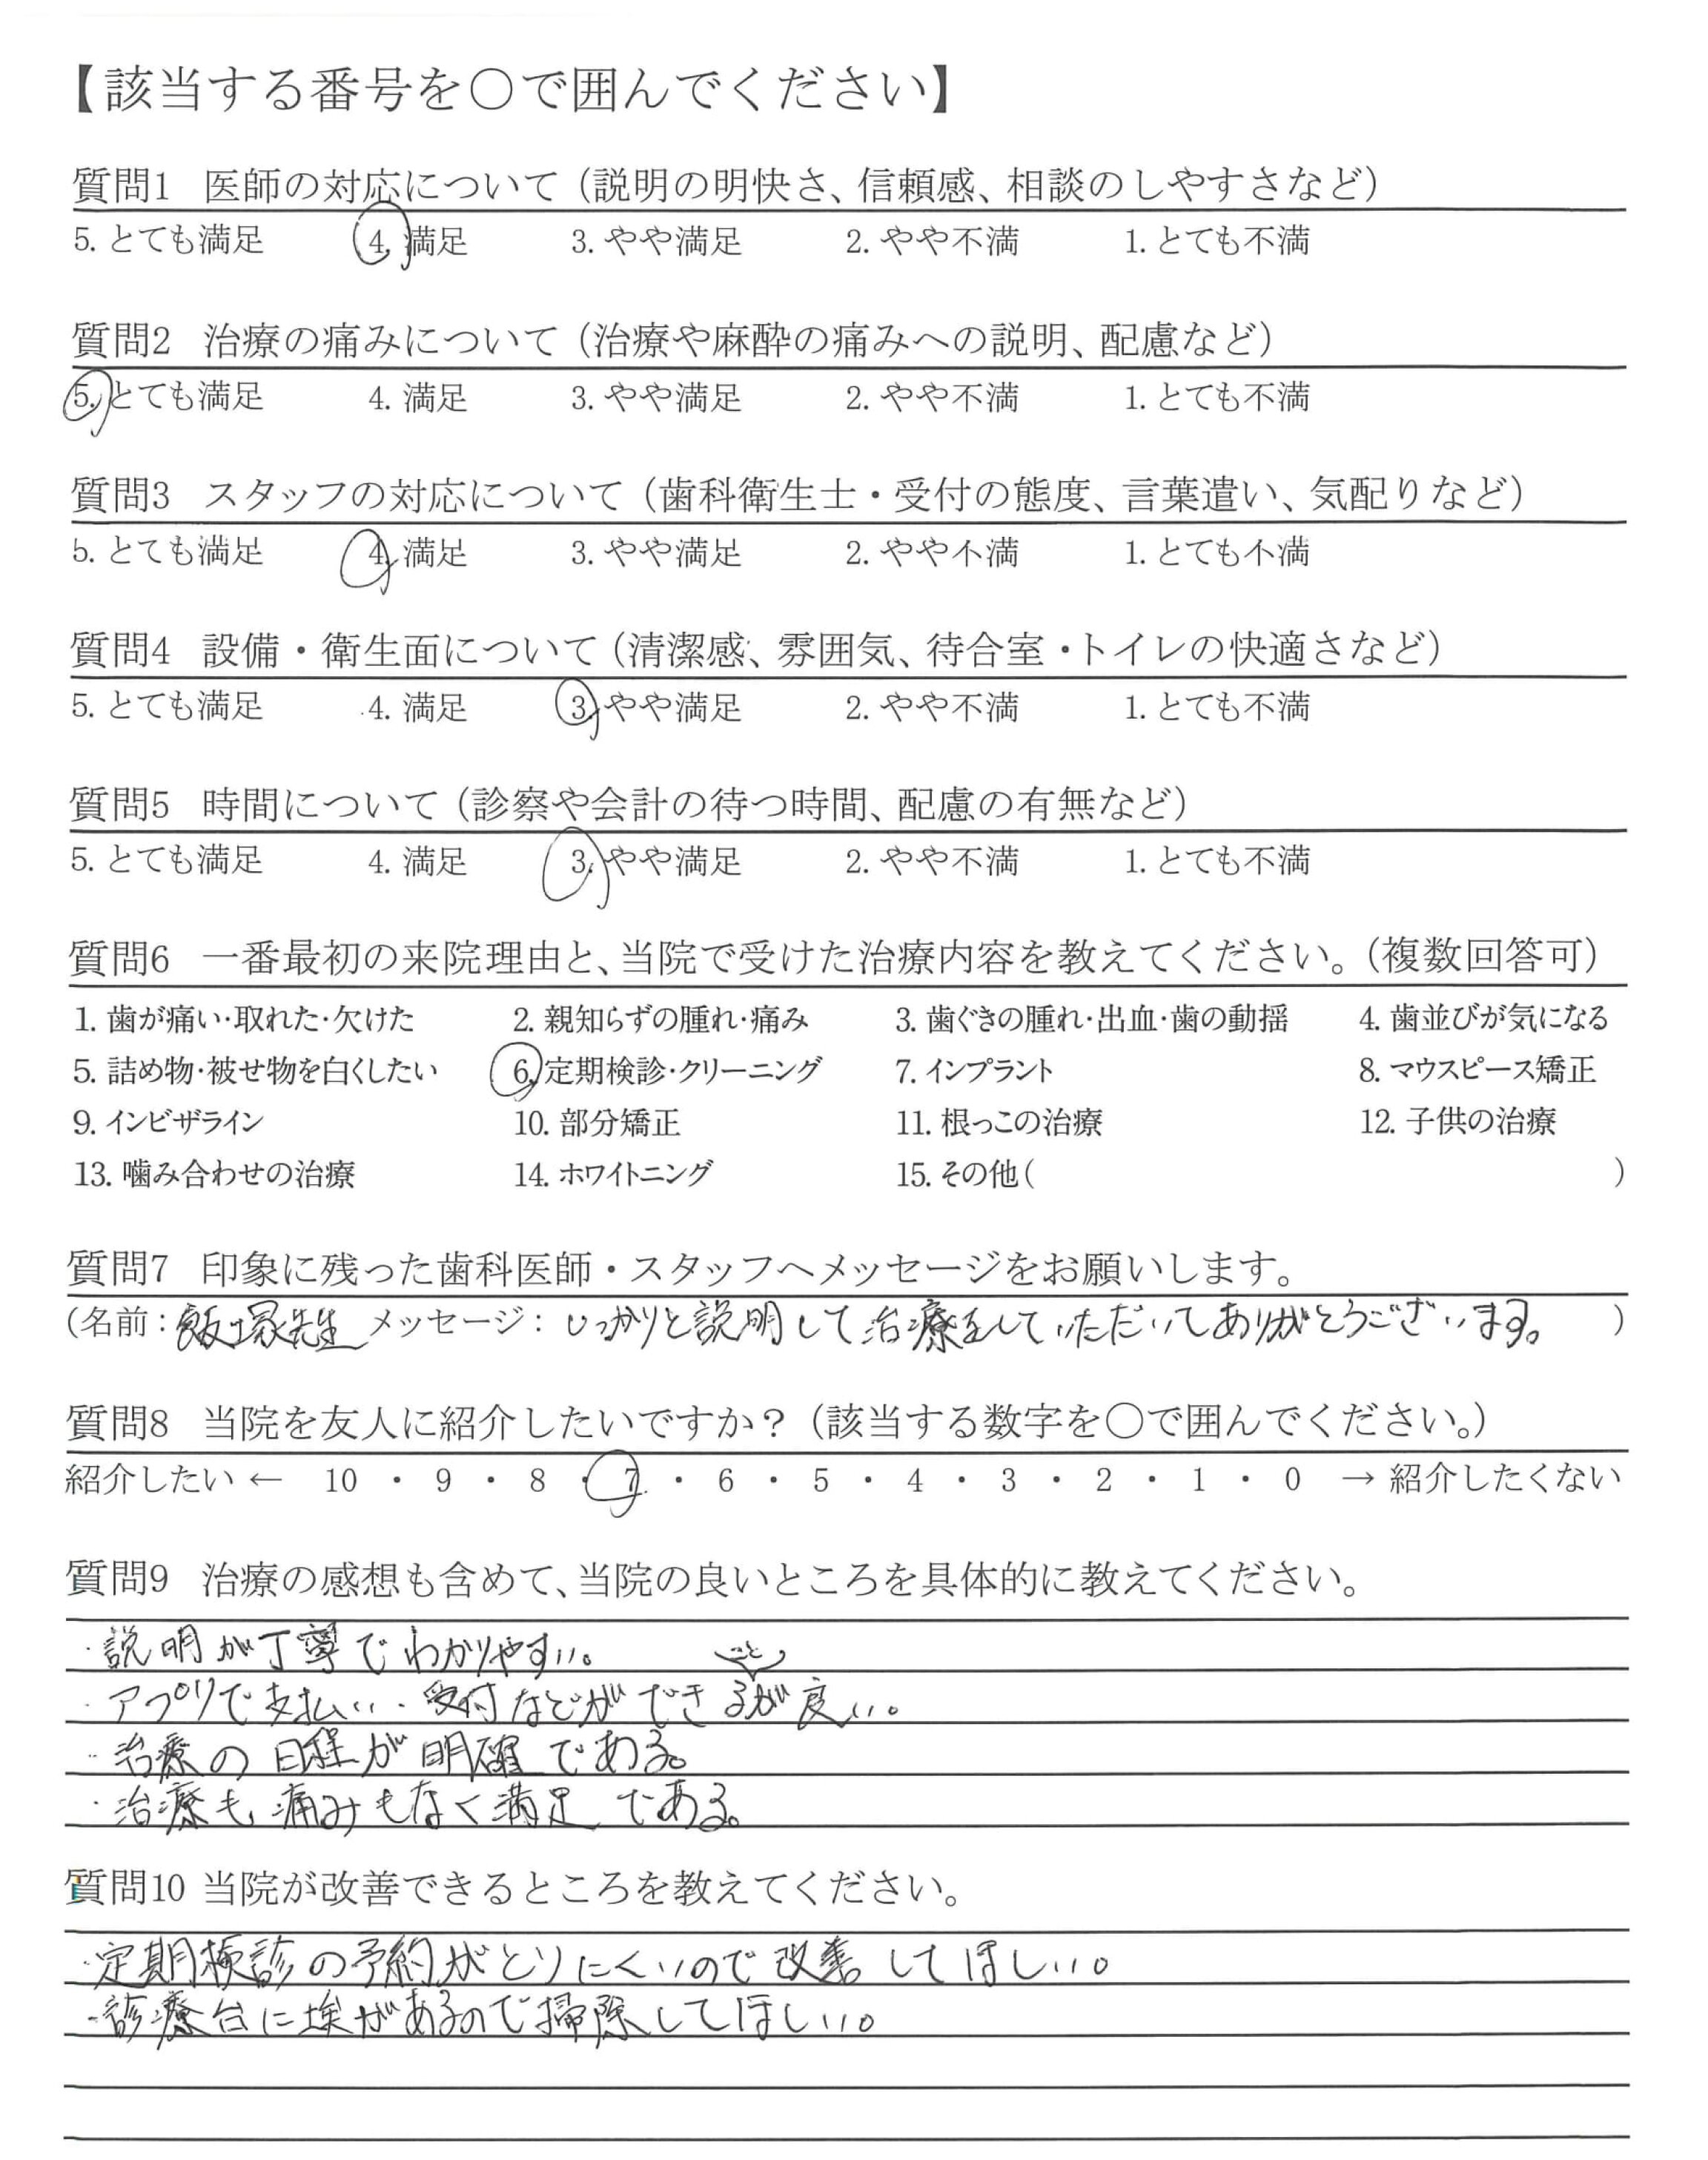 【該当する番号を○で囲んでください】
質問1 医師の対応について（説明の明快さ、信頼感、相談のしやすさなど）
5. とても満足 4. 満足 3. やや満足 2. やや不満 1. とても不満
質問2 治療の痛みについて（治療や麻酔の痛みへの説明、配慮など）
5. とても満足 4. 満足 3. やや満足 2. やや不満 1. とても不満
質問3 スタッフの対応について（歯科衛生士・受付の態度、言葉遣い、気配りなど）
5. とても満足 4. 満足 3. やや満足 2. やや不満 1. とても不満
質問4 設備・衛生面について（清潔感、雰囲気、待合室・トイレの快適さなど）
5. とても満足 4. 満足 3. やや満足 2. やや不満 1. とても不満
質問5 時間について（診察や会計の待つ時間、配慮の有無など）
5. とても満足 4. 満足 3. やや満足 2. やや不満 1. とても不満
質問6 一番最初の来院理由と、当院で受けた治療内容を教えてください。（複数回答可）
1. 歯が痛い・取れた・欠けた 2. 親知らずの腫れ・痛み 3. 歯ぐきの腫れ・出血・歯の動揺 4. 歯並びが気になる
5. 詰め物・被せ物を白くしたい 6. 定期検診・クリーニング 7. インプラント 8. マウスピース矯正
9. インビザライン 10. 部分矯正 11. 根っこの治療 12. 子供の治療
13. 噛み合わせの治療 14. ホワイトニング 15. その他（ ）
質問7 印象に残った歯科医師・スタッフへメッセージをお願いします。
（名前：飯塚先生 メッセージ：しっかりと説明して治療をしていただいてありがとうございます。）
質問8 当院を友人に紹介したいですか？（該当する数字を○で囲んでください。）
紹介したい ← 10 ・ 9 ・ 8 ・ 7 ・ 6 ・ 5 ・ 4 ・ 3 ・ 2 ・ 1 ・ 0 → 紹介したくない
質問9 治療の感想も含めて、当院の良いところを具体的に教えてください。
・説明が丁寧でわかりやすい。
・アプリで支払い・受付などができることが良い。
・治療の日程が明確である。
・治療も痛みもなく満足である。
質問10 当院が改善できるところを教えてください。
・定期検診の予約がとりにくいので改善してほしい。
・診療台に埃があるので掃除してほしい。